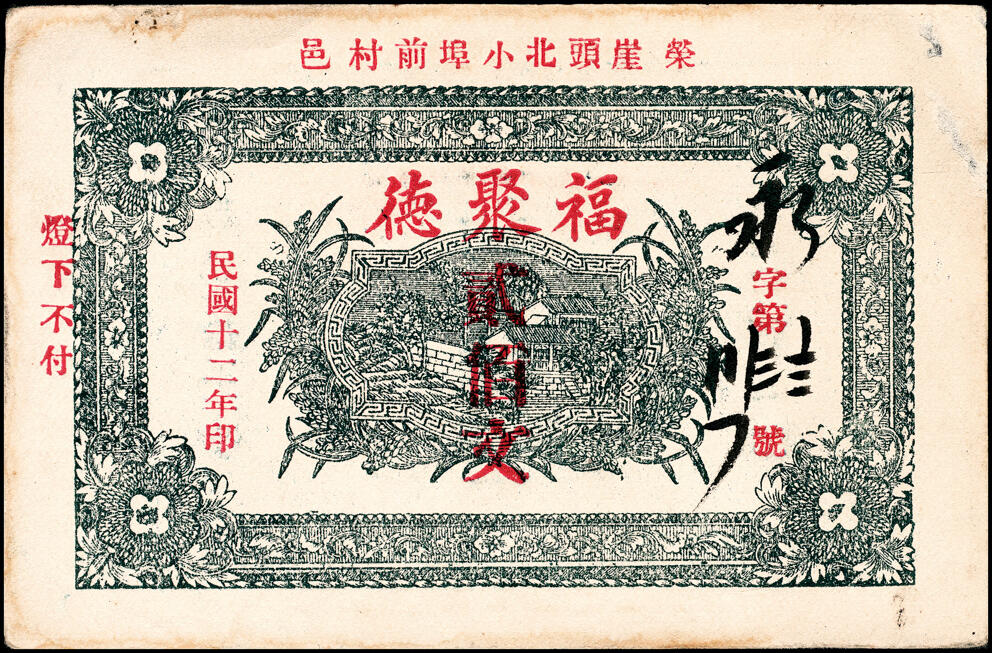 榮崖頭北小埠前村邑
福聚德
貳佰文
永
字第
號
民國十二年印
燈下不付